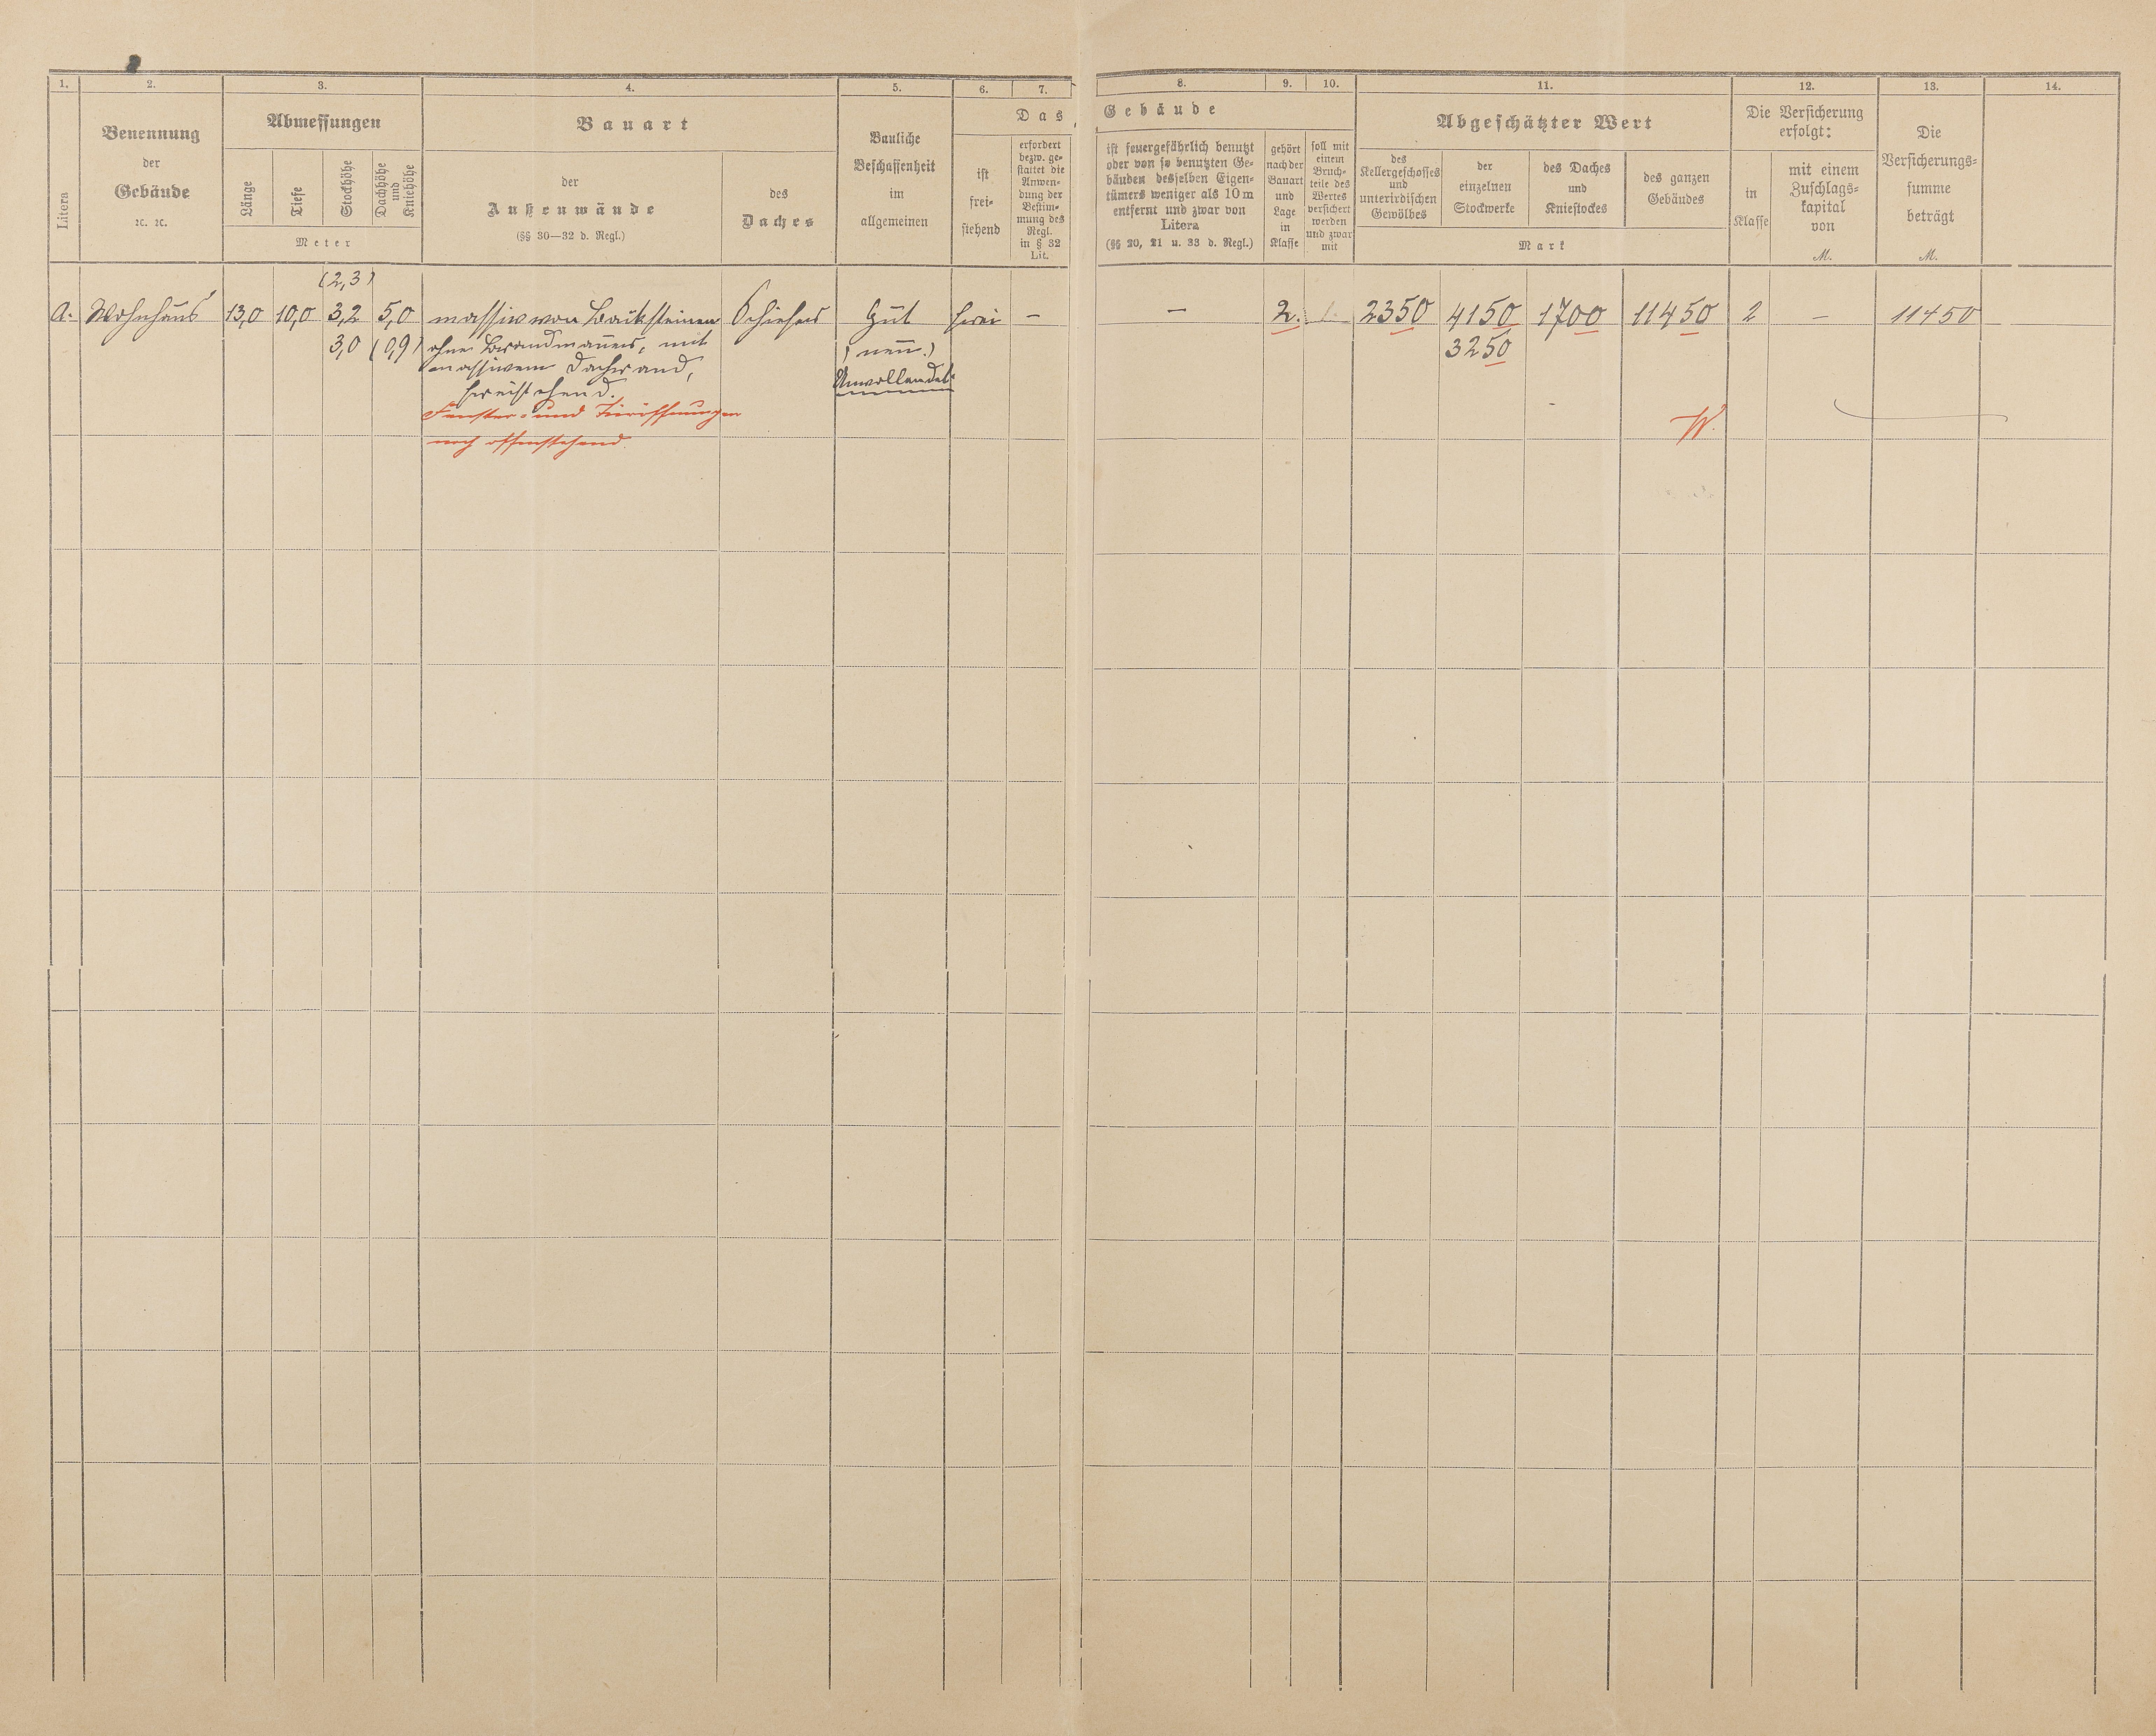 1. 2. 3. 4. 5. 6. 7. 8. 9. 10. 11. 12. 13. 14.
Litera
Benennung
der
Gebäude
ꝛc. ꝛc.
Abmessungen
Länge
Tiefe
Stockhöhe
Dachhöhe
und
Kniehöhe
Meter
Bauart
der
Außenwände
(§§ 30—32 d. Regl.)
des
Daches
Bauliche
Beschaffenheit
im
allgemeinen
Das Gebäude
ist
frei-
stehend
erfordert
bezw. ge-
stattet die
Anwen-
dung der
Bestim-
mung des
Regl.
in § 32
Lit.
ist feuergefährlich benutzt
oder von so benutzten Ge-
bäuden desselben Eigen-
tümers weniger als 10 m
entfernt und zwar von
Litera
(§§ 20, 21 u. 33 d. Regl.)
gehört
nach der
Bauart
und
Lage
in
Klasse
soll mit
einem
Bruch-
teile des
Wertes
versichert
werden
und zwar
mit
Abgeschätzter Wert
des
Kellergeschosses
und
unterirdischen
Gewölbes
der
einzelnen
Stockwerke
des Daches
und
Kniestockes
des ganzen
Gebäudes
Mark
Die Versicherung
erfolgt:
in
Klasse
mit einem
Zuschlags-
kapital
von
M.
Die
Versicherungs-
summe
beträgt
M.
(2,3)
A. Wohnhaus 13,0 10,0 3,2 5,0 massiv von Backsteinen Schiefer Gut frei — — 2. 1. 2350 4150 1700 11450 2 — 11450
3,0 (0,9) ohne Brandmauer, mit (neu.) 3250
massivem Dachrand, Unvollendet
freistehend.
Fenster- und Türöffnungen
noch offenstehend.
W.